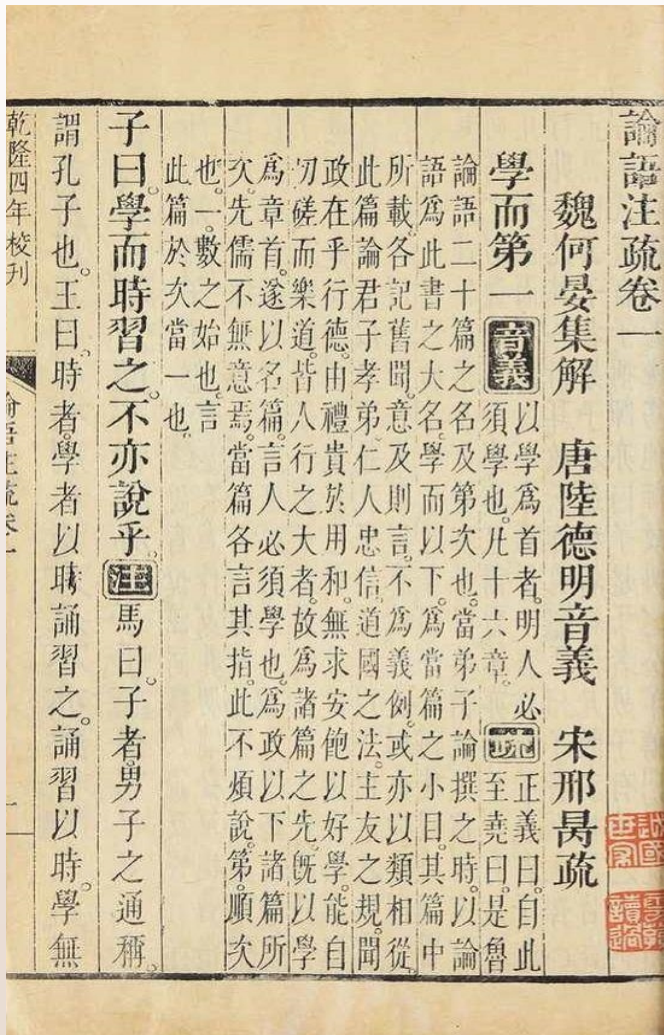 論語注疏卷一
魏何晏集解 唐陸德明音義 宋邢昺疏
學而第一 音義 以學爲首者。明人必須學也。凡十六章。 疏 正義曰。自此至堯曰。是魯
論語二十篇之名及第次也。當弟子論撰之時。以論
語爲此書之大名。學而以下。爲當篇之小目。其篇中
所載。各記舊聞。意及則言。不爲義例。或亦以類相從。
此篇論君子孝弟。仁人忠信。道國之法。主友之規。聞
政在乎行德。由禮貴於用和。無求安飽以好學。能自
切磋而樂道。皆人行之大者。故爲諸篇之先。旣以學
爲章首。遂以名篇。言人必須學也。爲政以下諸篇所
次。先儒不無意焉。當篇各言其指。此不煩說。第。順次
也。一。數之始也。言
此篇於次當一也。
子曰。學而時習之。不亦說乎。 注 馬曰。子者。男子之通稱。
謂孔子也。王曰。時者。學者以時誦習之。誦習以時。學無
乾隆四年校刊 論語注疏卷一 一